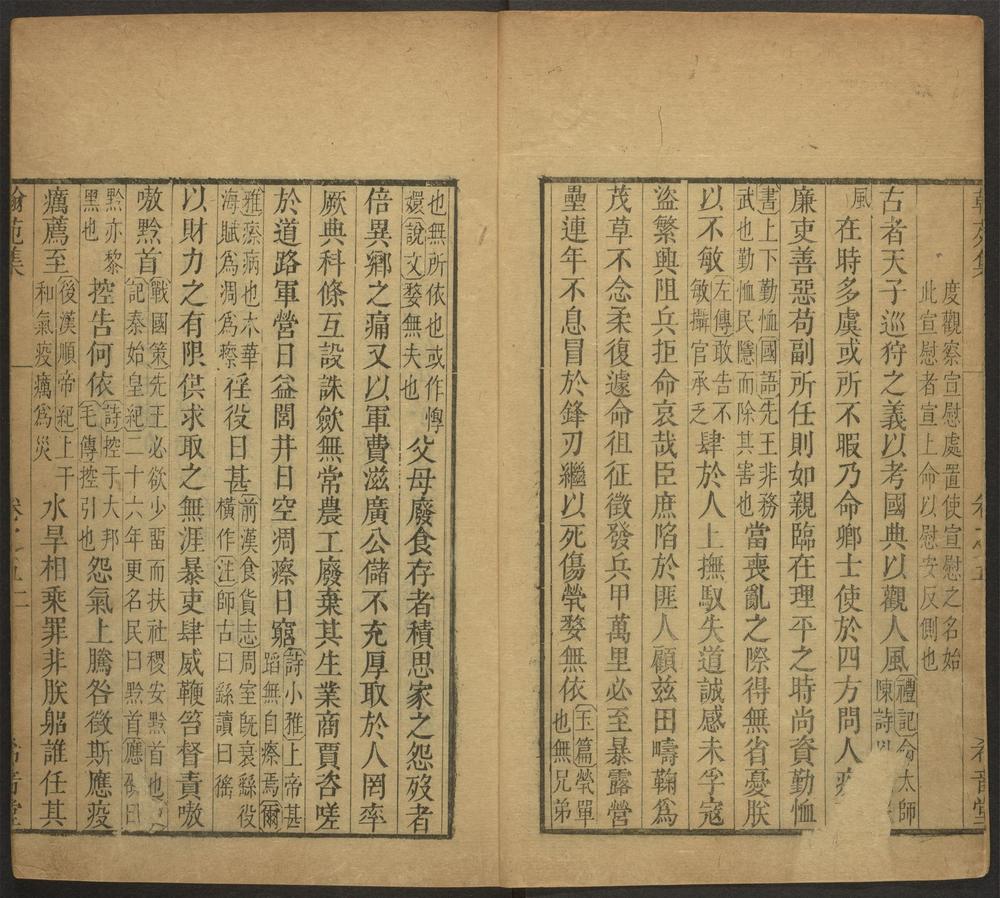 度觀察宣慰處置使宣慰之名始
此宣慰者宣上命以慰安反側也
古者天子巡狩之義以考國典以觀人風禮記命太師陳詩
風在時多虞或所不暇乃命卿士使於四方問人
廉吏善惡苟副所任則如親臨在理平之時尚資勤恤
書上下勤恤國語先王非務武也勤恤民隱而除其害也當喪亂之際得無省憂朕
以不敏左傳敢告不敏攝官承乏肆於人上撫馭失道誠感未孚寇
盜繁興阻兵拒命哀哉臣庶陷於匪人顧兹田疇鞠爲
茂草不念柔復遽命徂征徵發兵甲萬里必至暴露營
壘連年不息冒於鋒刃繼以死傷煢嫠無依玉篇煢單也無兄弟
也無所依也或作惸嬛說文嫠無夫也父母廢食存者積思家之怨歿者
倍異鄉之痛又以軍費滋廣公儲不充厚取於人罔率
厥典科條互設誅斂無常農工廢棄其生業商賈咨嗟
於道路軍營日益閭井日空凋瘵日窮詩小雅上帝甚蹈無自瘵焉爾
雅瘵病也木華海賦爲凋爲瘵徭役日甚前漢食貨志周室旣衰繇役橫作注師古曰繇讀曰徭
以財力之有限供求取之無涯暴吏肆威鞭笞督責嗷
嗷黔首戰國策先王必欲少留而扶社稷安黔首也記秦始皇紀二十六年更名民曰黔首應劭曰
黔亦黎黑也控告何依詩控于大邦毛傳控引也怨氣上騰咎徵斯應疫
癘薦至後漢順帝紀上干和氣疫癘爲災水旱相乘罪非朕躬誰任其
翰苑集 卷之五 二 希音堂